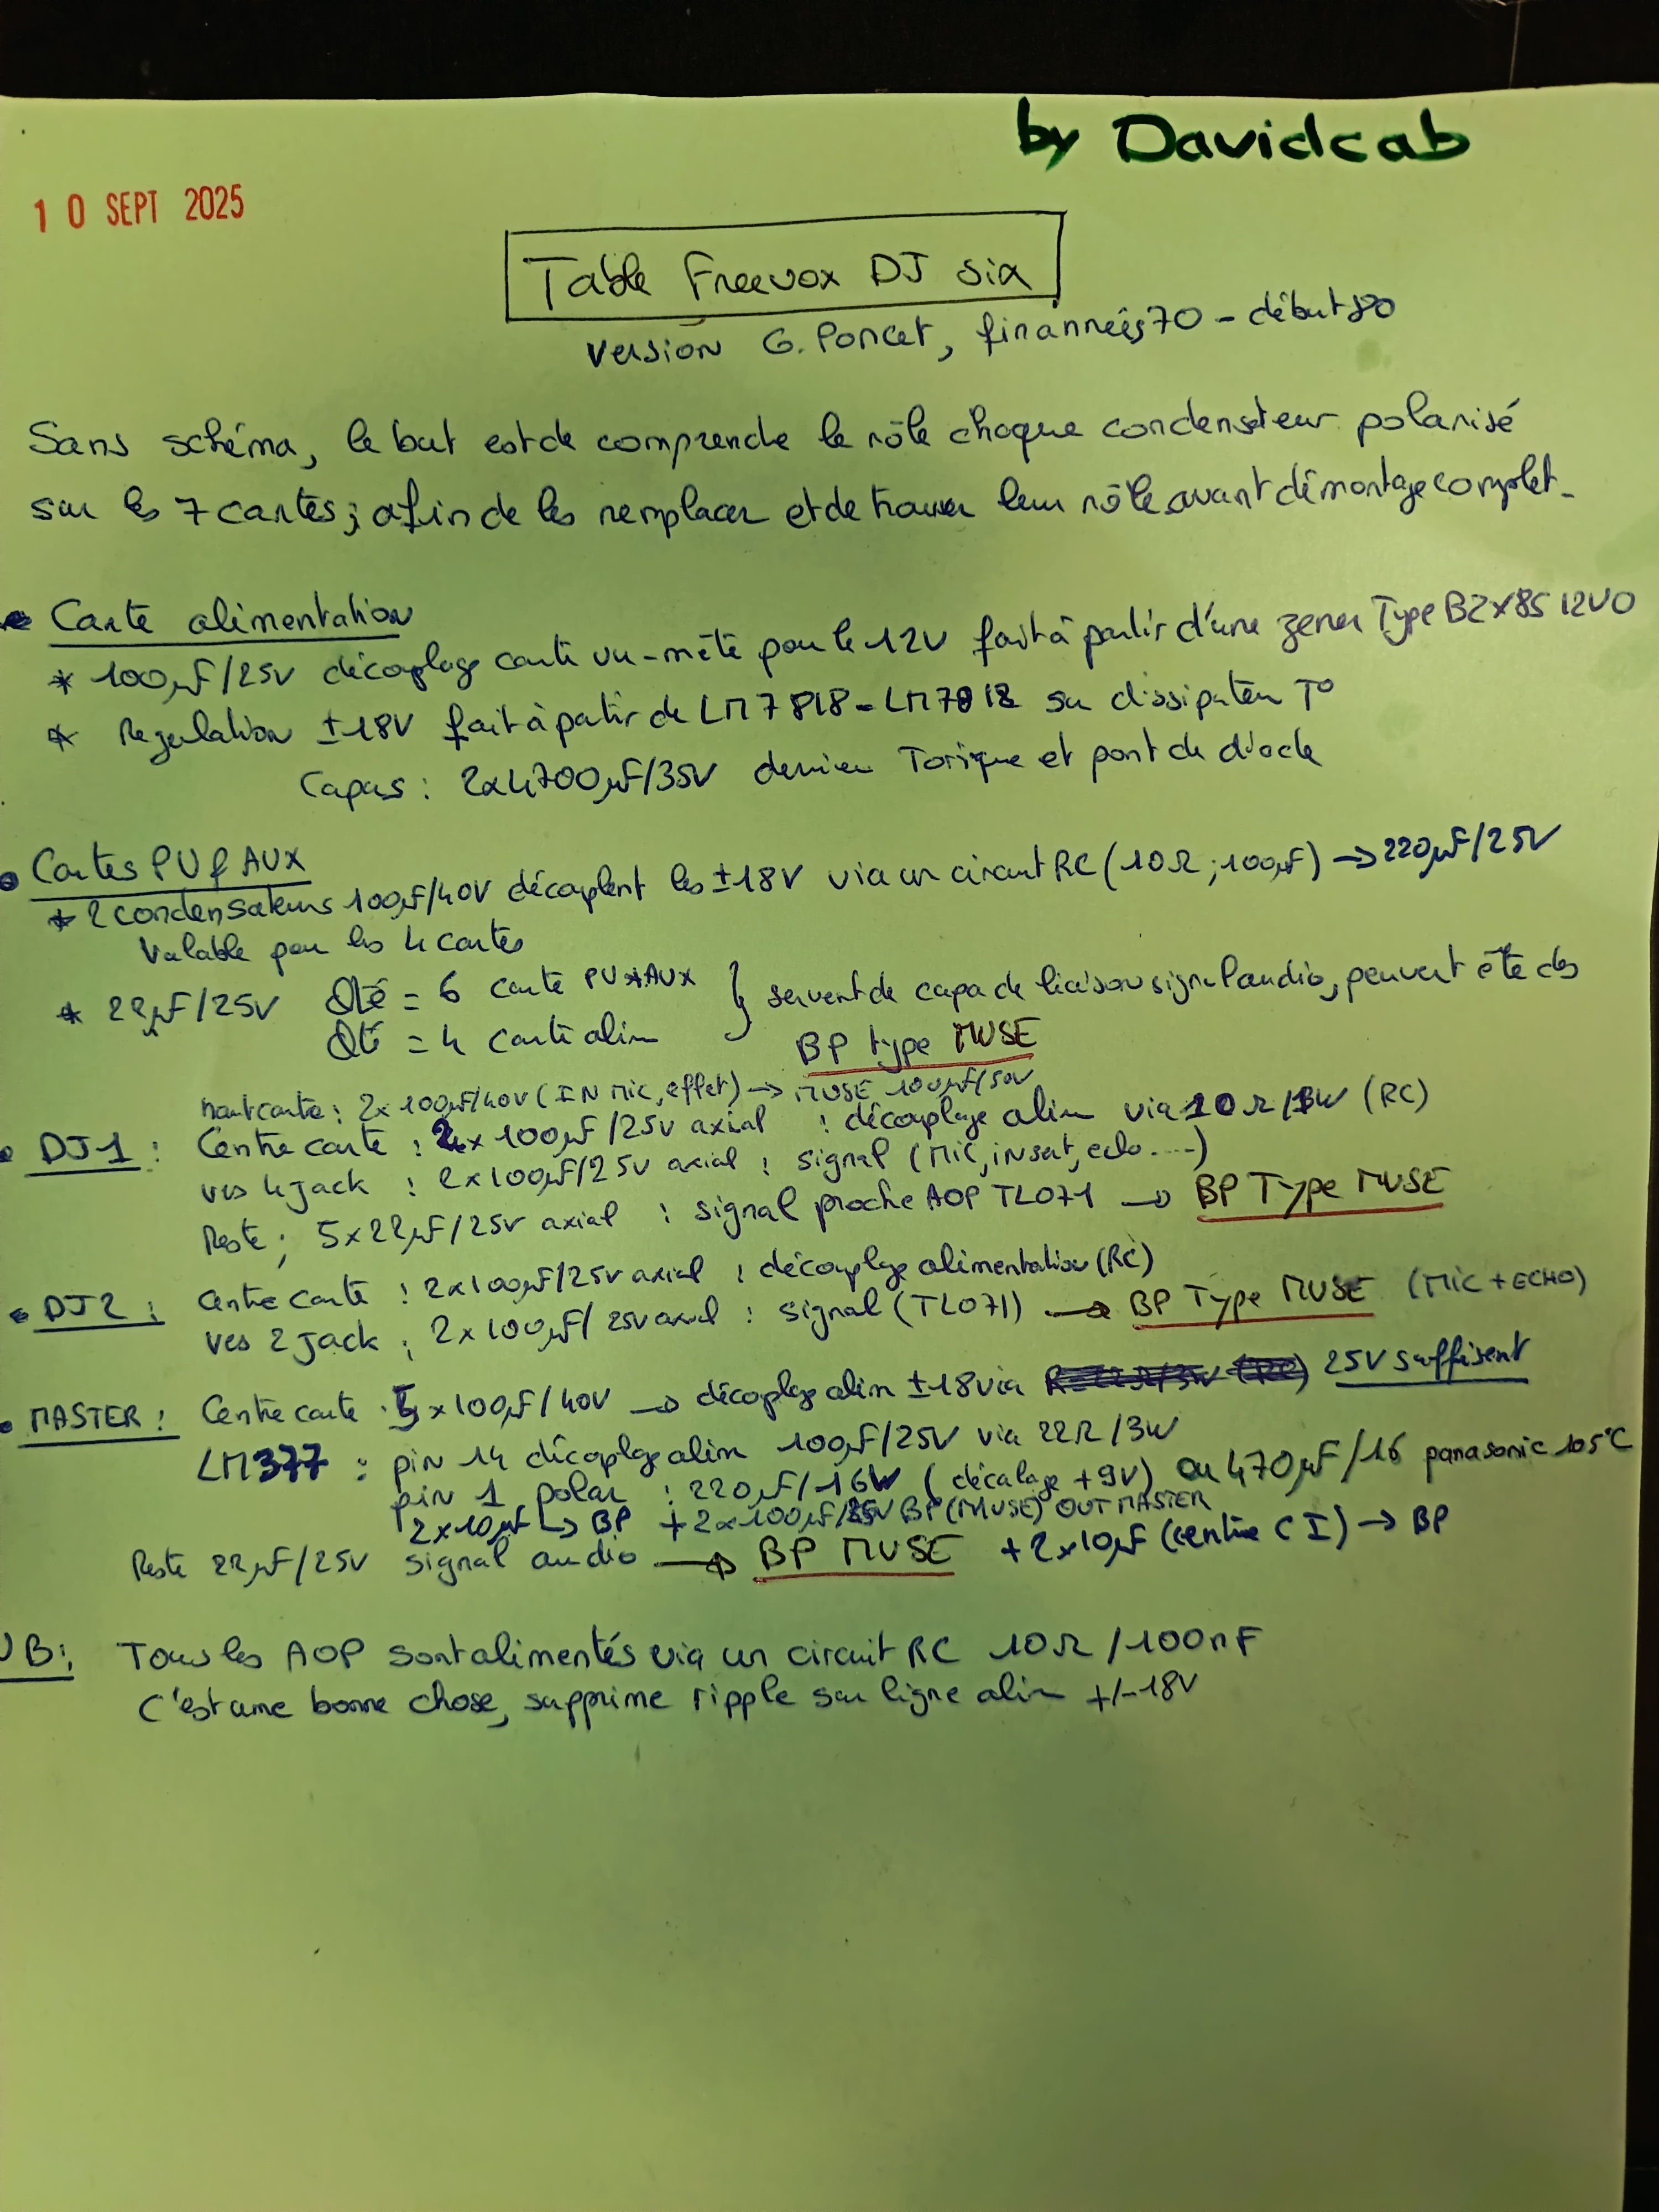 by Davidcab
10 SEPT 2025
Table Freevox DJ six
version G. Poncet, fin années 70 - début 80
Sans schéma, le but est de comprende le rôle chaque condensateur polarisé
sur les 7 cartes ; afin de les remplacer et de trouver leur rôle avant démontage complet.
• Carte alimentation
* 100µF/25V découplage carte vu-mète pour le 12V fait à partir d'une zener Type BZX85 12V0
* Regulation ±18V fait à partir de LM7818 - LM7918 sur dissipateur T°
Capas : 2x4700µF/35V derrier Torique et pont de diode
• Cartes PU & AUX
* 2 condensateurs 100µF/40V découplent les ±18V via un circuit RC (10Ω ; 100µF) → 220µF/25V
Valable pour les 4 cartes
* 22µF/25V Qté = 6 carte PU + AUX } servent de capa de liaison signal audio, peuvent être des
Qté = 4 carte alim BP type MUSE
haut carte : 2x 100µF/40V (IN Mic, effet) → MUSE 100µF/50V
• DJ1 : Centre carte : 2x 100µF/25V axial : découplage alim via 10Ω/3W (RC)
vers 4 jack : 2x100µF/25V axial : signal (Mic, insert, echo ....)
Reste ; 5x22µF/25V axial : signal proche AOP TL071 → BP Type MUSE
• DJ2 : Centre carte : 2x100µF/25V axial : découplage alimentation (RC)
vers 2 Jack ; 2x100µF/25V axial : signal (TL071) → BP Type MUSE (Mic + ECHO)
• MASTER : Centre carte : 5x100µF/40V → découplage alim ±18 via 25V suffisent
LM377 : pin 14 découplage alim 100µF/25V via 22Ω/3W
pin 1 polar : 220µF/16V (décalage +9V) ou 470µF/16 panasonic 105°C
2x10µF → BP + 2x100µF/25V BP (MUSE) OUT MASTER
Reste 22µF/25V signal audio → BP MUSE + 2x10µF (centre CI) → BP
NB : Tous les AOP sont alimentés via un circuit RC 10Ω/100nF
C'est une bonne chose, supprime ripple sur ligne alim +/-18V